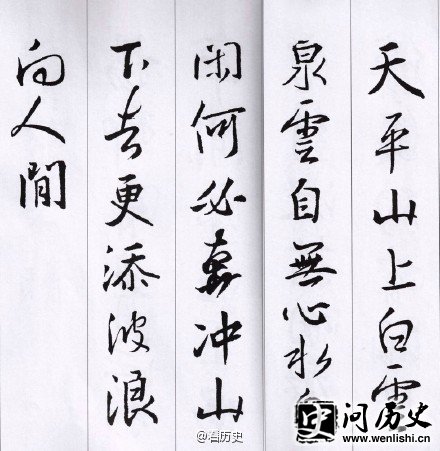 天平山上白雲
泉雲自無心水自
闲何必奔冲山
下去更添波浪
向人間
@看历史
问历史
www.wenlishi.cn